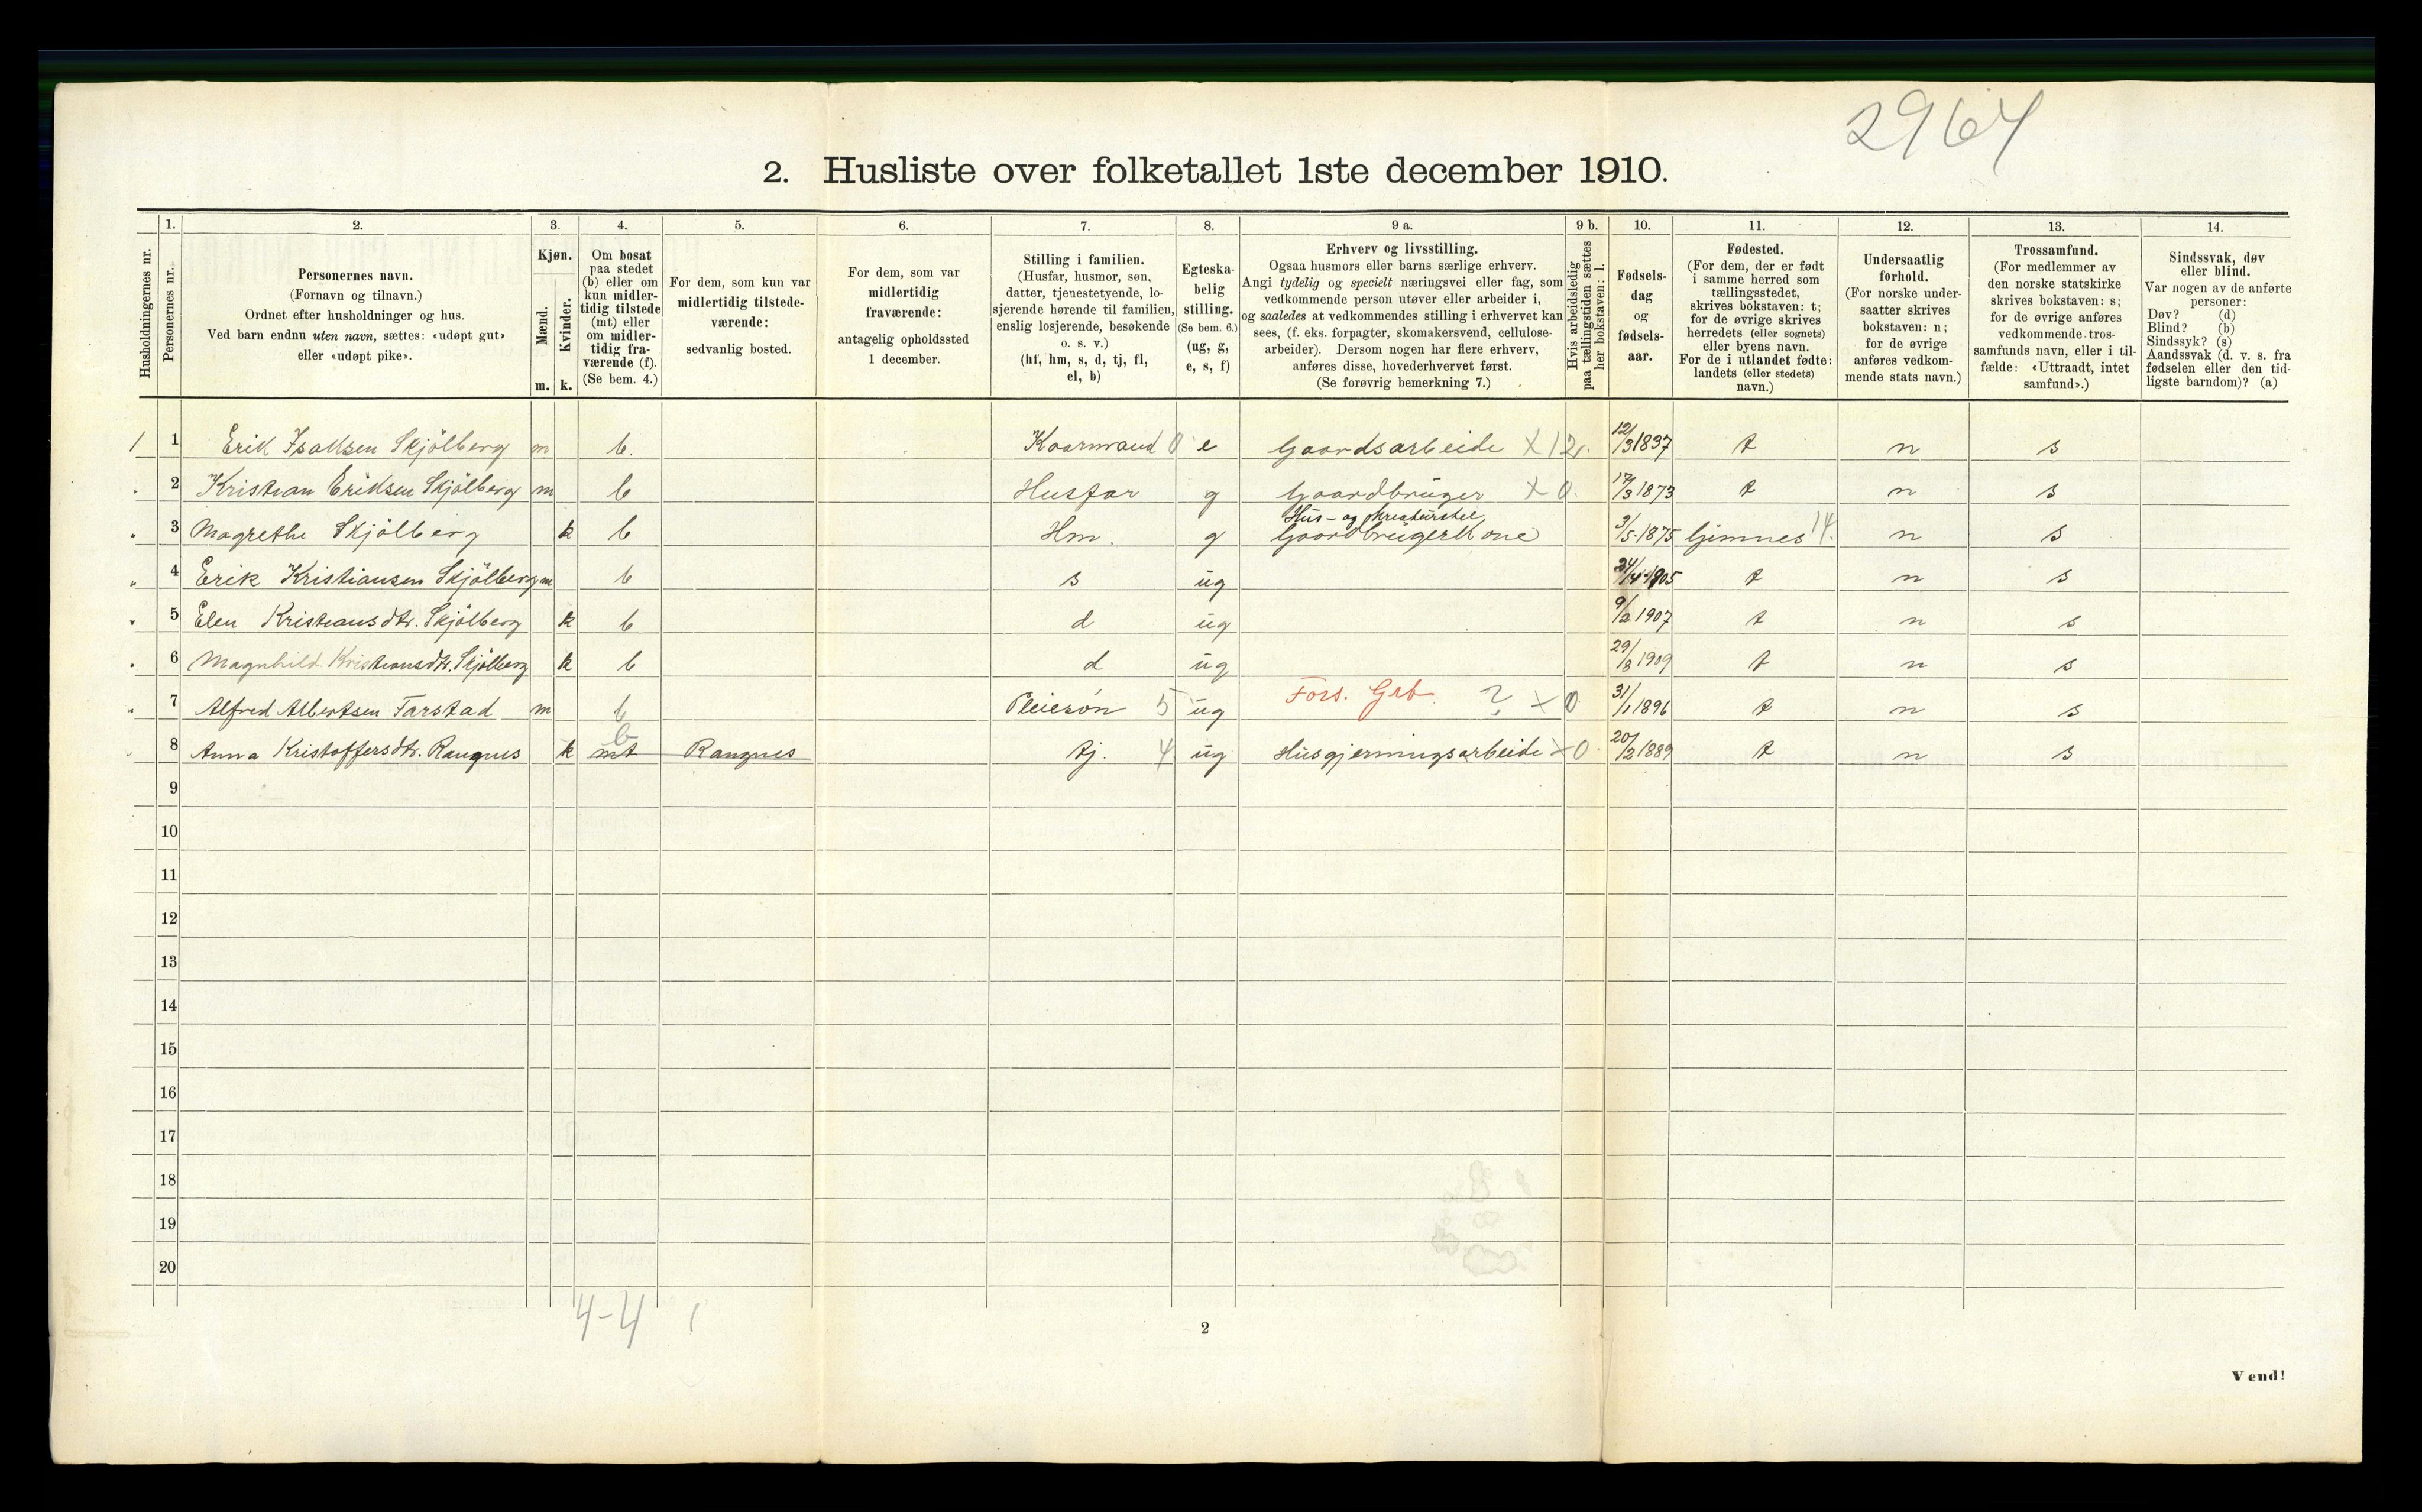 2964
2. Husliste over folketallet 1ste december 1910.
Husholdningernes nr.
1. Personernes nr.
2. Personernes navn.
(Fornavn og tilnavn.)
Ordnet efter husholdninger og hus.
Ved barn endnu uten navn, sættes: «udøpt gut»
eller «udøpt pike».
3. Kjøn.
Mænd. m.
Kvinder. k.
4. Om bosat
paa stedet
(b) eller om
kun midler-
tidig tilstede
(mt) eller
om midler-
tidig fra-
værende (f).
(Se bem. 4.)
5. For dem, som kun var
midlertidig tilstede-
værende:
sedvanlig bosted.
6. For dem, som var
midlertidig
fraværende:
antagelig opholdssted
1 december.
7. Stilling i familien.
(Husfar, husmor, søn,
datter, tjenestetyende, lo-
sjerende hørende til familien,
enslig losjerende, besøkende
o. s. v.)
(hf, hm, s, d, tj, fl,
el, b)
8. Egteska-
belig
stilling.
(Se bem. 6.)
(ug, g,
e, s, f)
9 a. Erhverv og livsstilling.
Ogsaa husmors eller barns særlige erhverv.
Angi tydelig og specielt næringsvei eller fag, som
vedkommende person utøver eller arbeider i,
og saaledes at vedkommendes stilling i erhvervet kan
sees, (f. eks. forpagter, skomakersvend, cellulose-
arbeider). Dersom nogen har flere erhverv,
anføres disse, hovederhvervet først.
(Se forøvrig bemerkning 7.)
9 b. Hvis arbeidsledig
paa tællingstiden sættes
her bokstaven: l.
10. Fødsels-
dag
og
fødsels-
aar.
11. Fødested.
(For dem, der er født
i samme herred som
tællingsstedet,
skrives bokstaven: t;
for de øvrige skrives
herredets (eller sognets)
eller byens navn.
For de i utlandet fødte:
landets (eller stedets)
navn.)
12. Undersaatlig
forhold.
(For norske under-
saatter skrives
bokstaven: n;
for de øvrige
anføres vedkom-
mende stats navn.)
13. Trossamfund.
(For medlemmer av
den norske statskirke
skrives bokstaven: s;
for de øvrige anføres
vedkommende tros-
samfunds navn, eller i til-
fælde: «Uttraadt, intet
samfund».)
14. Sindssvak, døv
eller blind.
Var nogen av de anførte
personer:
Døv? (d)
Blind? (b)
Sindssyk? (s)
Aandssvak (d. v. s. fra
fødselen eller den tid-
ligste barndom)? (a)
1 1 Erik Isaksen Skjölberg m b. Kaarmand 0 e Gaardsarbeide X 12. 12/3 1837 t n s
2 Kristian Eriksen Skjölberg m b Husfar g Gaardbruger X 0. 17/3 1873 t n s
Hus- og Kreaturstel
3 Magrethe Skjölberg k b Hm. g Gaardbrugerkone 3/5-1875 Gjemnes 14. n s
4 Erik Kristiansen Skjölberg m b s ug 24/4-1905 t n s
5 Elen Kristiansdtr. Skjölberg k b d ug 9/2 1907 t n s
6 Magnhild Kristiansdtr. Skjölberg k b d ug 29/8 1909 t n s
7 Alfred Albertsen Farstad m b Pleiesøn 5 ug Fors. Grb. ? X 0 31/1 1896 t n s
b
8 Anna Kristoffersdtr. Raugnes k mt Raugnes tj. 4 ug Husgjerningsarbeide X 0. 20/2 1889 t n s
9
10
11
12
13
14
15
16
17
18
19
20
4-4
2
Vend!